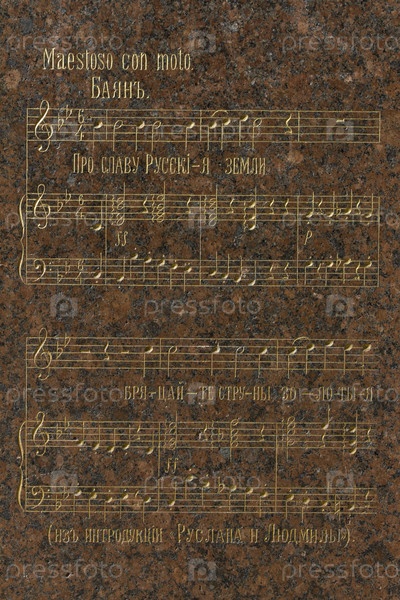 Maestoso con moto.
БАЯНЪ.
ПРО СЛАВУ РУССКІ-Я ЗЕМЛИ
ff
p
БРЯ-ЦАЙ-ТЕ СТРУ-НЫ ЗО-ЛО-ТЫ-Я
ff
(ИЗЪ ИНТРОДУКЦІИ РУСЛАНА И ЛЮДМИЛЫ).
pressfoto